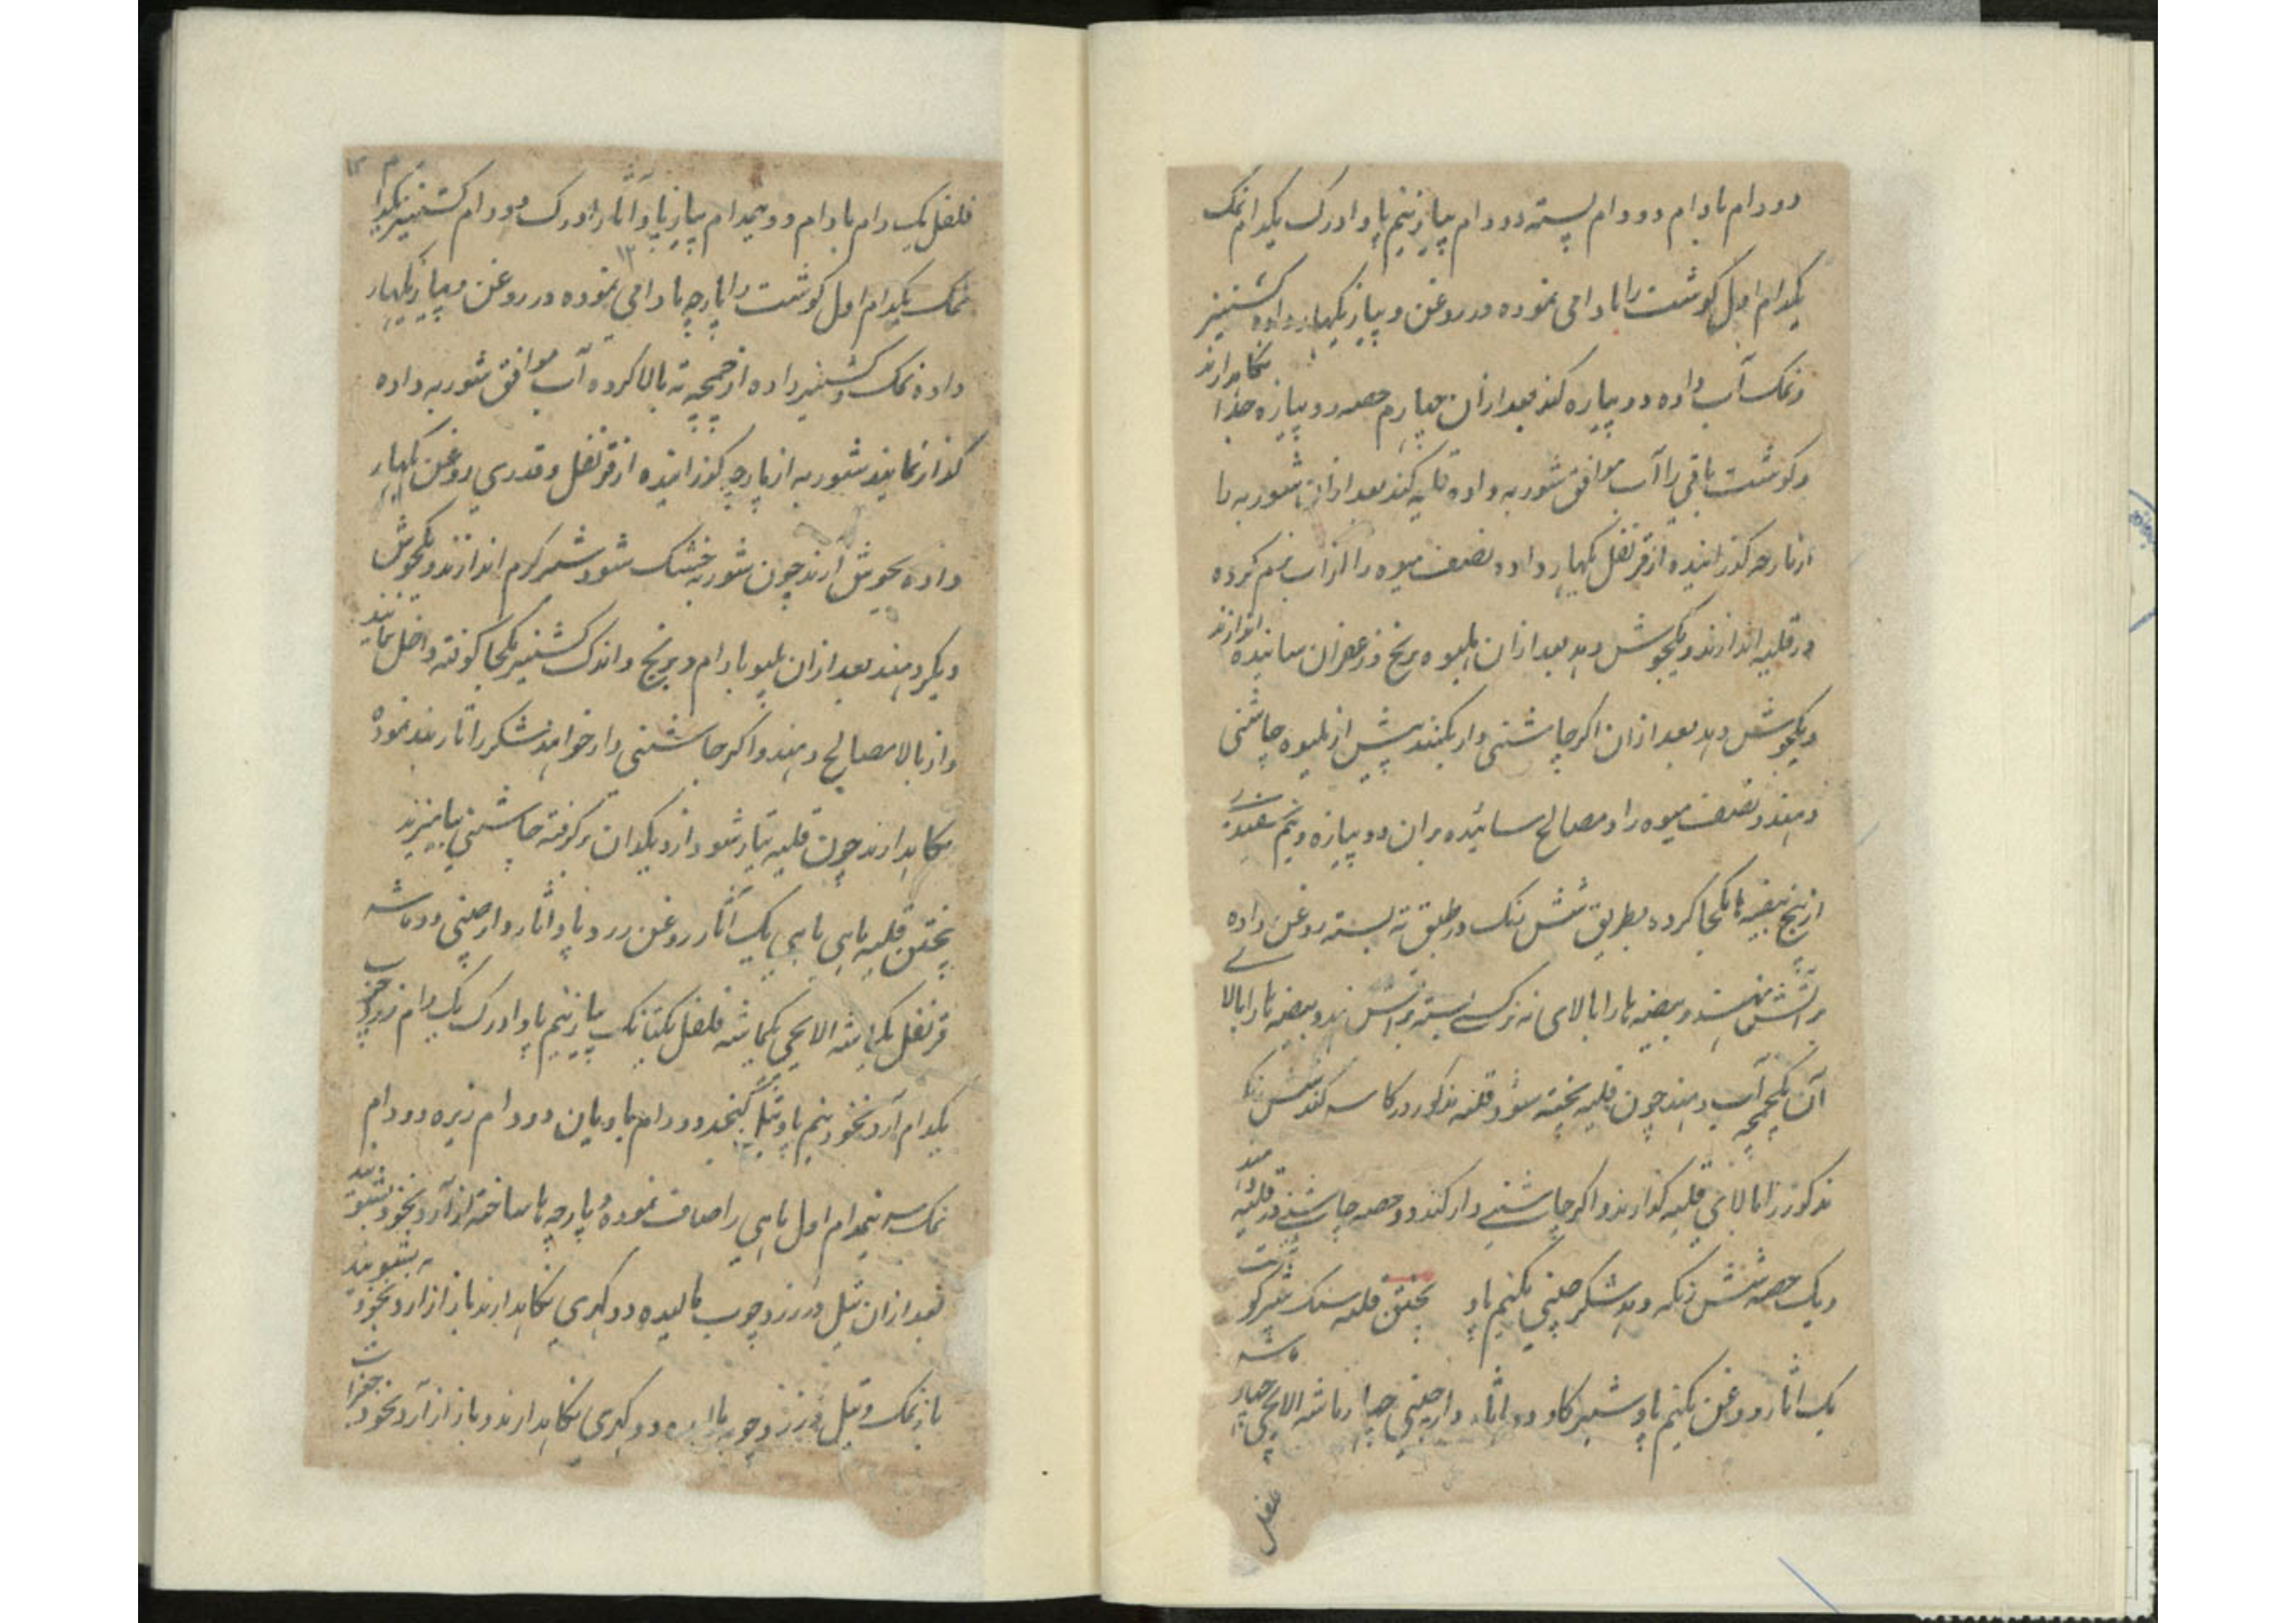 دو دام بادام دو دام پسته دو دام پیاز نیم پاو ادرک یکدام نمک
یکدام اول گوشت را بادامی نموده در روغن و پیاز بگهار داده کشنیز
و نمک آب داده دو پیازه کند بعد ازان چهارم حصه دو پیازه جدا نگاهدارند
و گوشت باقی را آب موافق شوربه داده قلیه کند بعد ازان شوربه را
از پارچه گذرانیده از قرنفل بگهار داده نصف میوه را از آب نرم کرده
در قلیه اندازند و یکجوش دهد بعد ازان پلیوه برنج و زعفران سائیده اندازند
و یکجوش دهد بعد ازان اگر چاشنی دار بکنند پیش از پلیوه چاشنی
دهند و نصف میوه را و مصالح سائیده بران دو پیازه و نیم سفیده
از پنج بیضه ها یکجا کرده بطریق شش رنگ در طبق ته بسته روغن داده
بر آتش نهند و بیضه ها را بالای نرگسی بسته بر آتش نهد و بیضه ها را بالا
آن یکچمچه آب دهند چون قلیه پخته شود قلیه مذکور در کاسه کند شش رنگ
مذکور را بالای قلیه گذارند و اگر چاشنی دار کند دو حصه چاشنی در قلیه دهند
و یک حصه شش رنگه دهد شکر چینی یکنیم پاو پختن قلیه سنگ شیر گوشت
یک اثار روغن یکنیم پاو شیر گاو دو اثار دارچینی چهار ماشه الایچی چهار ماشه
فلفل
فلفل یک دام بادام دو نیمدام پیاز پاو اثار ادرک دو دام کشنیز یکدام
نمک یکدام اول گوشت را پارچه بادامی نموده در روغن و پیاز بگهار
داده نمک و کشنیز داده از چمچه ته بالا کرده آب موافق شوربه داده
گداز نمایند شوربه از پارچه گذرانیده از قرنفل و قدری روغن بگهار
داده بجوش آرند چون شوربه خشک شود شیر گرم اندازند و یکجوش
دیگر دهند بعد ازان پلیو بادام و برنج و اندک کشنیز یکجا کوفته داخل نمایند
و از بالا مصالح دهند و اگر چاشنی دار خواهند شکر را تار بند نموده
نگاهدارند چون قلیه تیار شود از دیگدان برگرفته چاشنی بیامیزند
پختن قلیه ماهی ماهی یک اثار روغن زرد پاو اثار دارچینی دو ماشه
قرنفل یکماشه الایچی یکماشه فلفل یکتانک پیاز نیم پاو ادرک یک دام زرد چوب
یکدام آرد نخود نیم پاو تیل کنجد دو دام بادیان دو دام زیره دو دام
نمک سه نیمدام اول ماهی را صاف نموده پارچه ها ساخته از آرد نخود بشویند
بعد ازان تیل و زرد چوب مالیده دو گهری نگاهدارند باز از آرد نخود بشویند
باز نمک و تیل و زرد چوبه مالیده دو گهری نگاهدارند و باز از آرد نخود